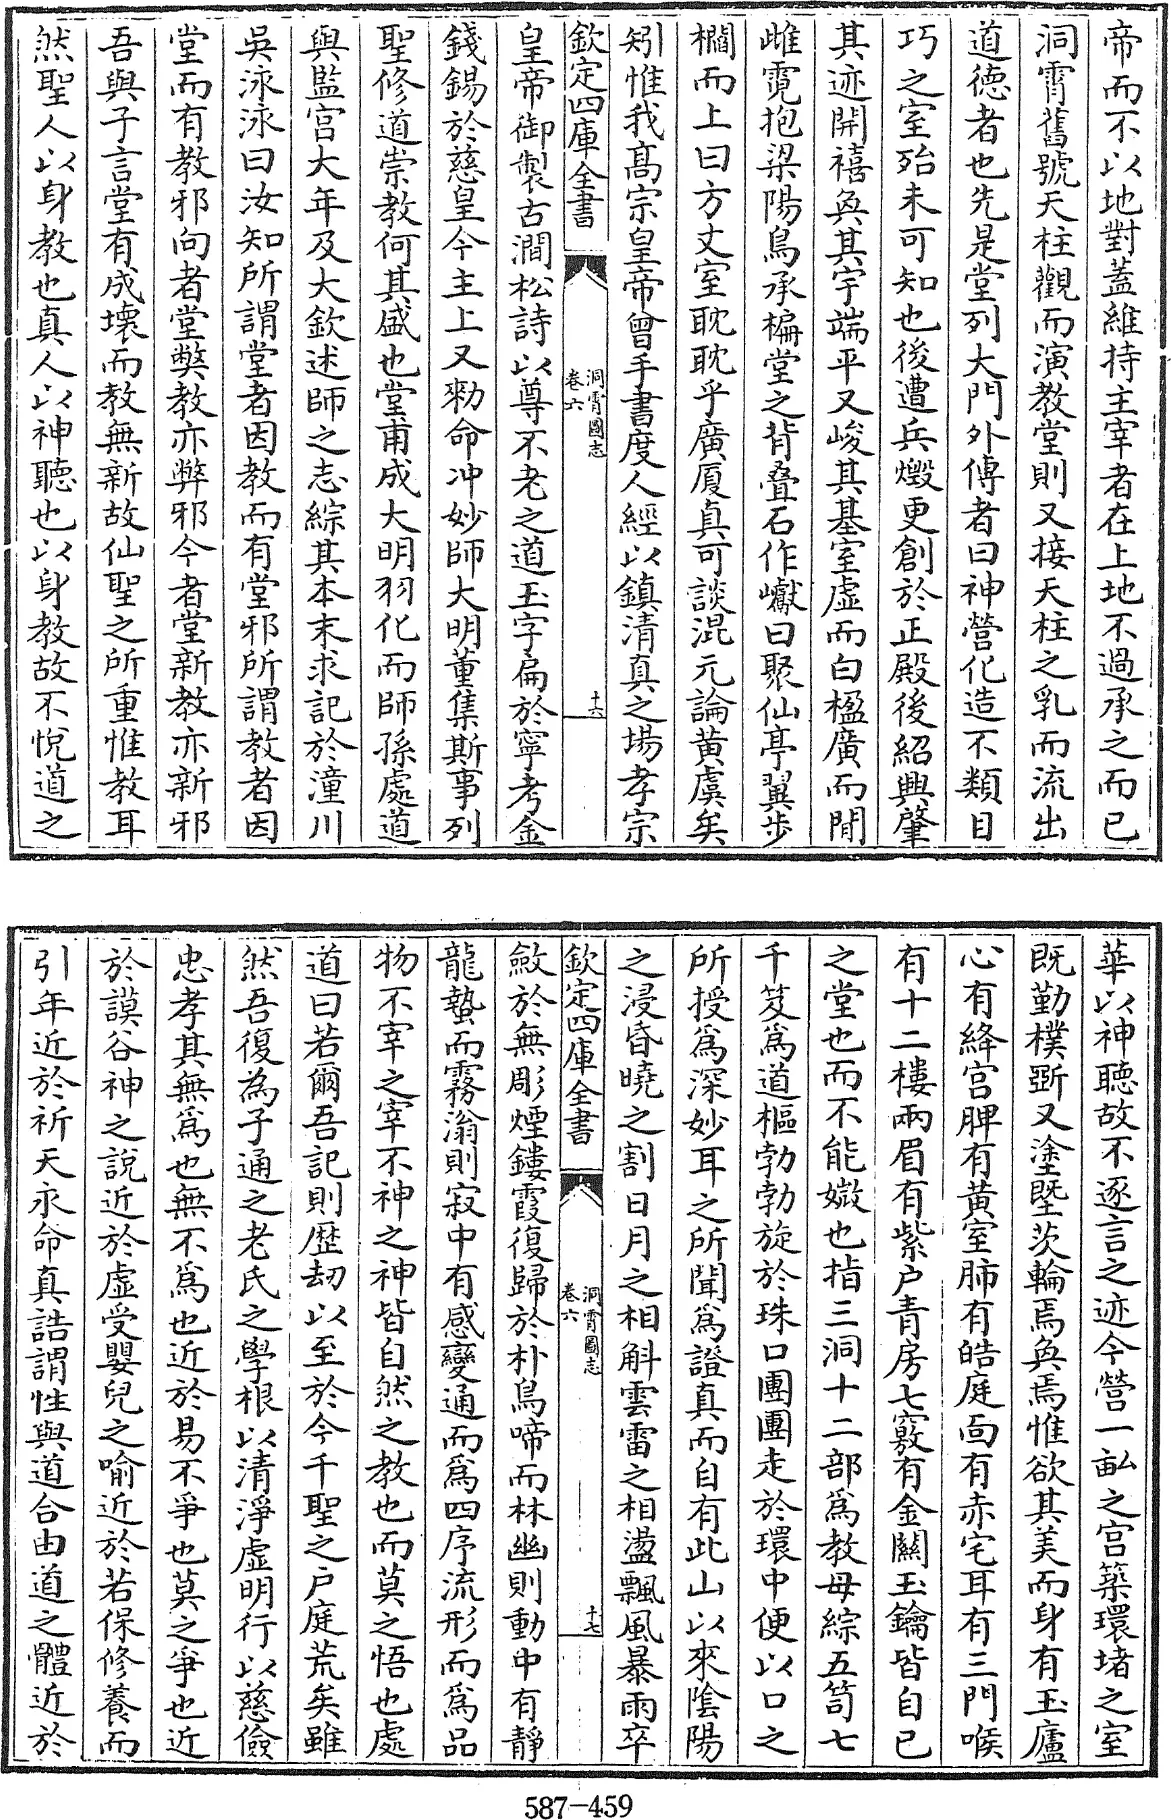 帝而不以地對蓋維持主宰者在上地不過承之而已
洞霄舊號天柱觀而演教堂則又接天柱之乳而流出
道德者也先是堂列大門外傳者曰神營化造不類目
巧之室殆未可知也後遭兵燬更創於正殿後紹興肇
其迹開禧奐其宇端平又峻其基室虛而白楹廣而閒
雌霓抱梁陽鳥承楄堂之背疊石作巘曰聚仙亭翼步
櫩而上曰方丈室耽耽乎廣厦真可談混元論黄虞矣
矧惟我髙宗皇帝曾手書度人經以鎮清真之場孝宗
欽定四庫全書
洞霄圖志
卷六
十六
皇帝御製古澗松詩以尊不老之道玉字扁於寧考金
錢錫於慈皇今主上又勑命冲妙師大明董集斯事列
聖修道崇教何其盛也堂甫成大明羽化而師孫處道
與監宫大年及大欽述師之志綜其本末求記於潼川
吳泳泳曰汝知所謂堂者因教而有堂邪所謂教者因
堂而有教邪向者堂獘教亦弊邪今者堂新教亦新邪
吾與子言堂有成壊而教無新故仙聖之所重惟教耳
然聖人以身教也真人以神聽也以身教故不悅道之
華以神聽故不逐言之迹今營一畝之宫築環堵之室
既勤樸斵又塗塈茨輪焉奐焉惟欲其美而身有玉廬
心有絳宫脾有黄室肺有皓庭面有赤宅耳有三門喉
有十二樓兩眉有紫户青房七竅有金關玉鑰皆自已
之堂也而不能媺也指三洞十二部爲教母綜五笥七
千笈爲道樞勃勃旋於珠口團團走於環中便以口之
所授爲深妙耳之所聞爲證真而自有此山以來陰陽
之浸昏曉之割日月之相斛雲雷之相盪飄風暴雨卒
欽定四庫全書
洞霄圖志
卷六
十七
斂於無彫煙鏤霞復歸於朴鳥啼而林幽則動中有静
龍蟄而霧滃則寂中有感變通而爲四序流形而爲品
物不宰之宰不神之神皆自然之教也而莫之悟也處
道曰若爾吾記則歴劫以至於今千聖之户庭荒矣雖
然吾復為子通之老氏之學根以清淨虛明行以慈儉
忠孝其無爲也無不爲也近於易不爭也莫之爭也近
於謨谷神之説近於虛受嬰兒之喻近於若保修養而
引年近於祈天永命真誥謂性與道合由道之體近於
587-459